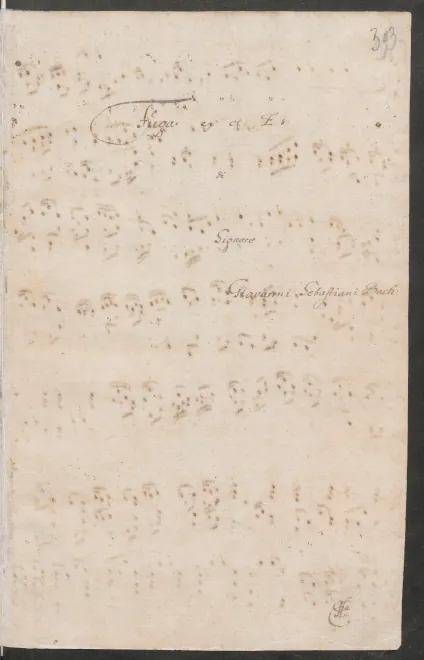 393
Fuga ex
di
Signore
Giovanni Sebastiani Bach